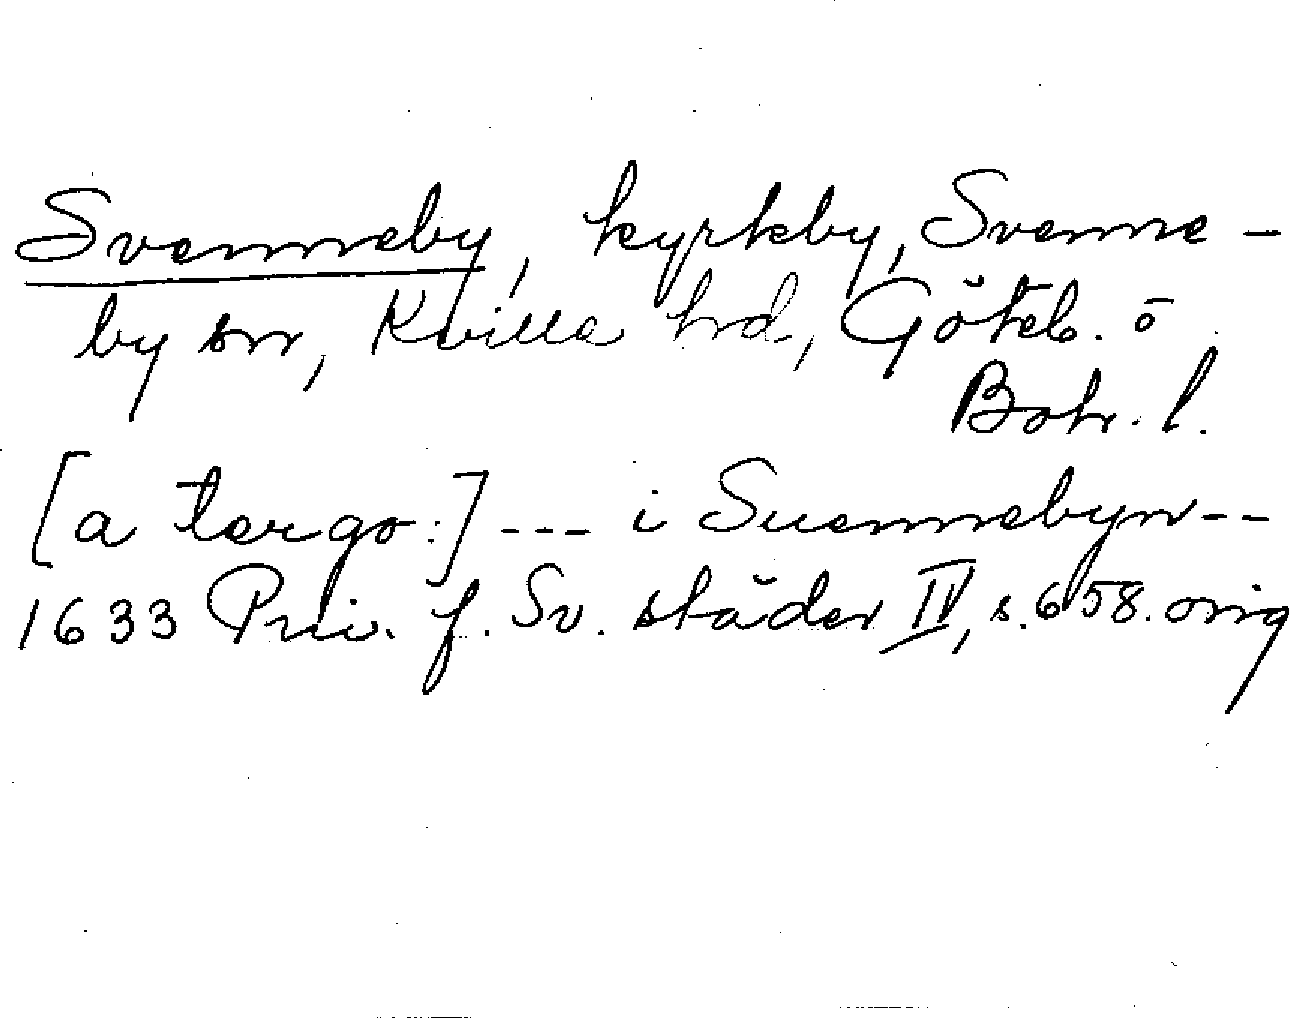 Svenneby, kyrkby, Svenne-
by sn, Kville hd, Göteb. o
Boh. l.
[a tergo:] --- i Suennebyn --
1633 Priv. f. Sv. städer IV, s. 658. orig